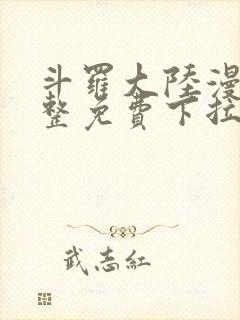 斗羅大陸漫
整免費下拉
武志紅